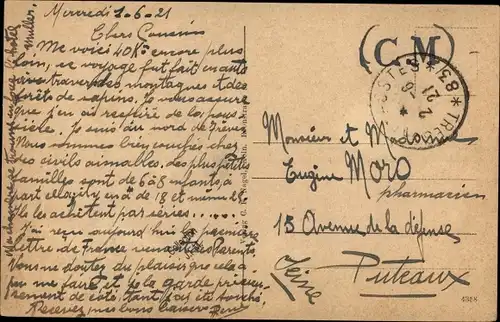 Mercredi 1-6-21
Chers Cousins
Me voici 40 Km encore plus
loin, le voyage fut fait en auto
à travers des montagnes et des
forêts de sapins. Je vous assure
que j'en ai respiré de la pous
sière. Je suis au nord de Trèves
Nous sommes bien couchés chez
des civils aimables, des plus petites
familles sont de 6 à 8 enfants, à
part elles il y en a de 18 et même 20
ils les achètent par séries.....
J'ai reçu aujourd'hui la première
lettre de France venant des Parents.
Vous me doutez du plaisir que cela a
pu me faire et je la garde précieu-
sement de côté, tant j'ai été touché.
Recevez mes bons baisers René
(C.M)
TRÉSOR ET POSTES
* 83 *
2 -6
21
Monsieur et Madame
Eugène Moro
pharmacien
15 Avenue de la défense
Puteaux
Seine
4388